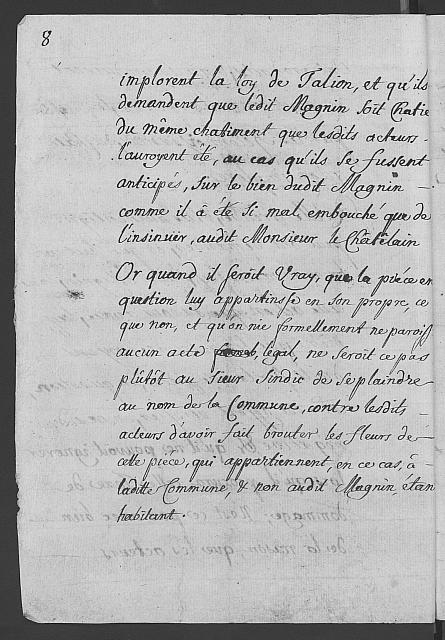 8
implorent la loy de Talion, et qu'ils
demandent que ledit Magnin soit Chatie
du même chatiment que lesdits acteurs
l'auroyent été, au cas qu'ils se fussent
anticipés, sur le bien dudit Magnin
comme il à été si mal embouché que de
l'insinuer, audit Monsieur le Chatelain
Or quand il seroit Vray, que la piéce en
question luy appartinsse en son propre, ce
que non, et qu'on nie formellement ne parois
aucun acte legal, ne seroit ce pas
plûtôt au Sieur Sindic de se plaindre
au nom de la Commune, contre lesdits
acteurs d'avoir fait brouter les fleurs de
cette piece, qui appartiennent, en ce cas, à
laditte Commune, & non audit Magnin, étan
habitant.